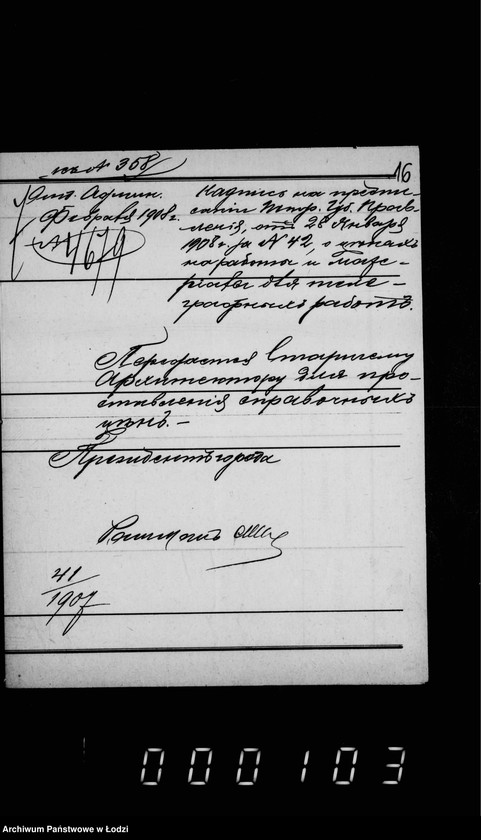 къ № 358
16
Отп. Админ.
Февраля 1908 г.
№ 4679
Надпись на предпи-
саніи Петр. Губ. Прав-
ленія, отъ 28 Января
1908 г. за № 42, о цѣнахъ
на работы и мате-
ріалы для теле-
графныхъ работъ.
Передается Старшему
Архитектору для про-
ставленія справочныхъ
цѣнъ. —
Президентъ города
41
1907
000103
Archiwum Państwowe w Łodzi